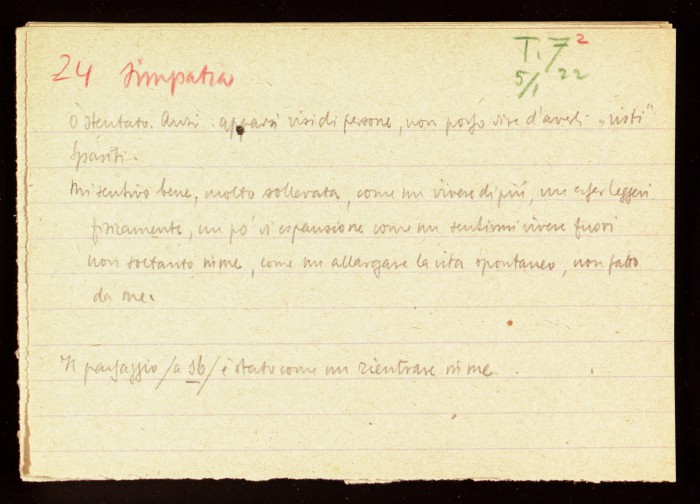 24 Simpatia
T. 7²
5/1 22
O stentato. Anzi apparsi visi di persone, non posso dire d'averli „visti"
sparili.
Mi sentivo bene, molto sollevata, come un vivere di più, un esser leggeri
fisicamente, un po' di espansione come un sentirmi vivere fuori
non soltanto in me, come un allargare la vita spontaneo, non fatto
da me.
Il passaggio /a sb/ è stato come un rientrare in me.